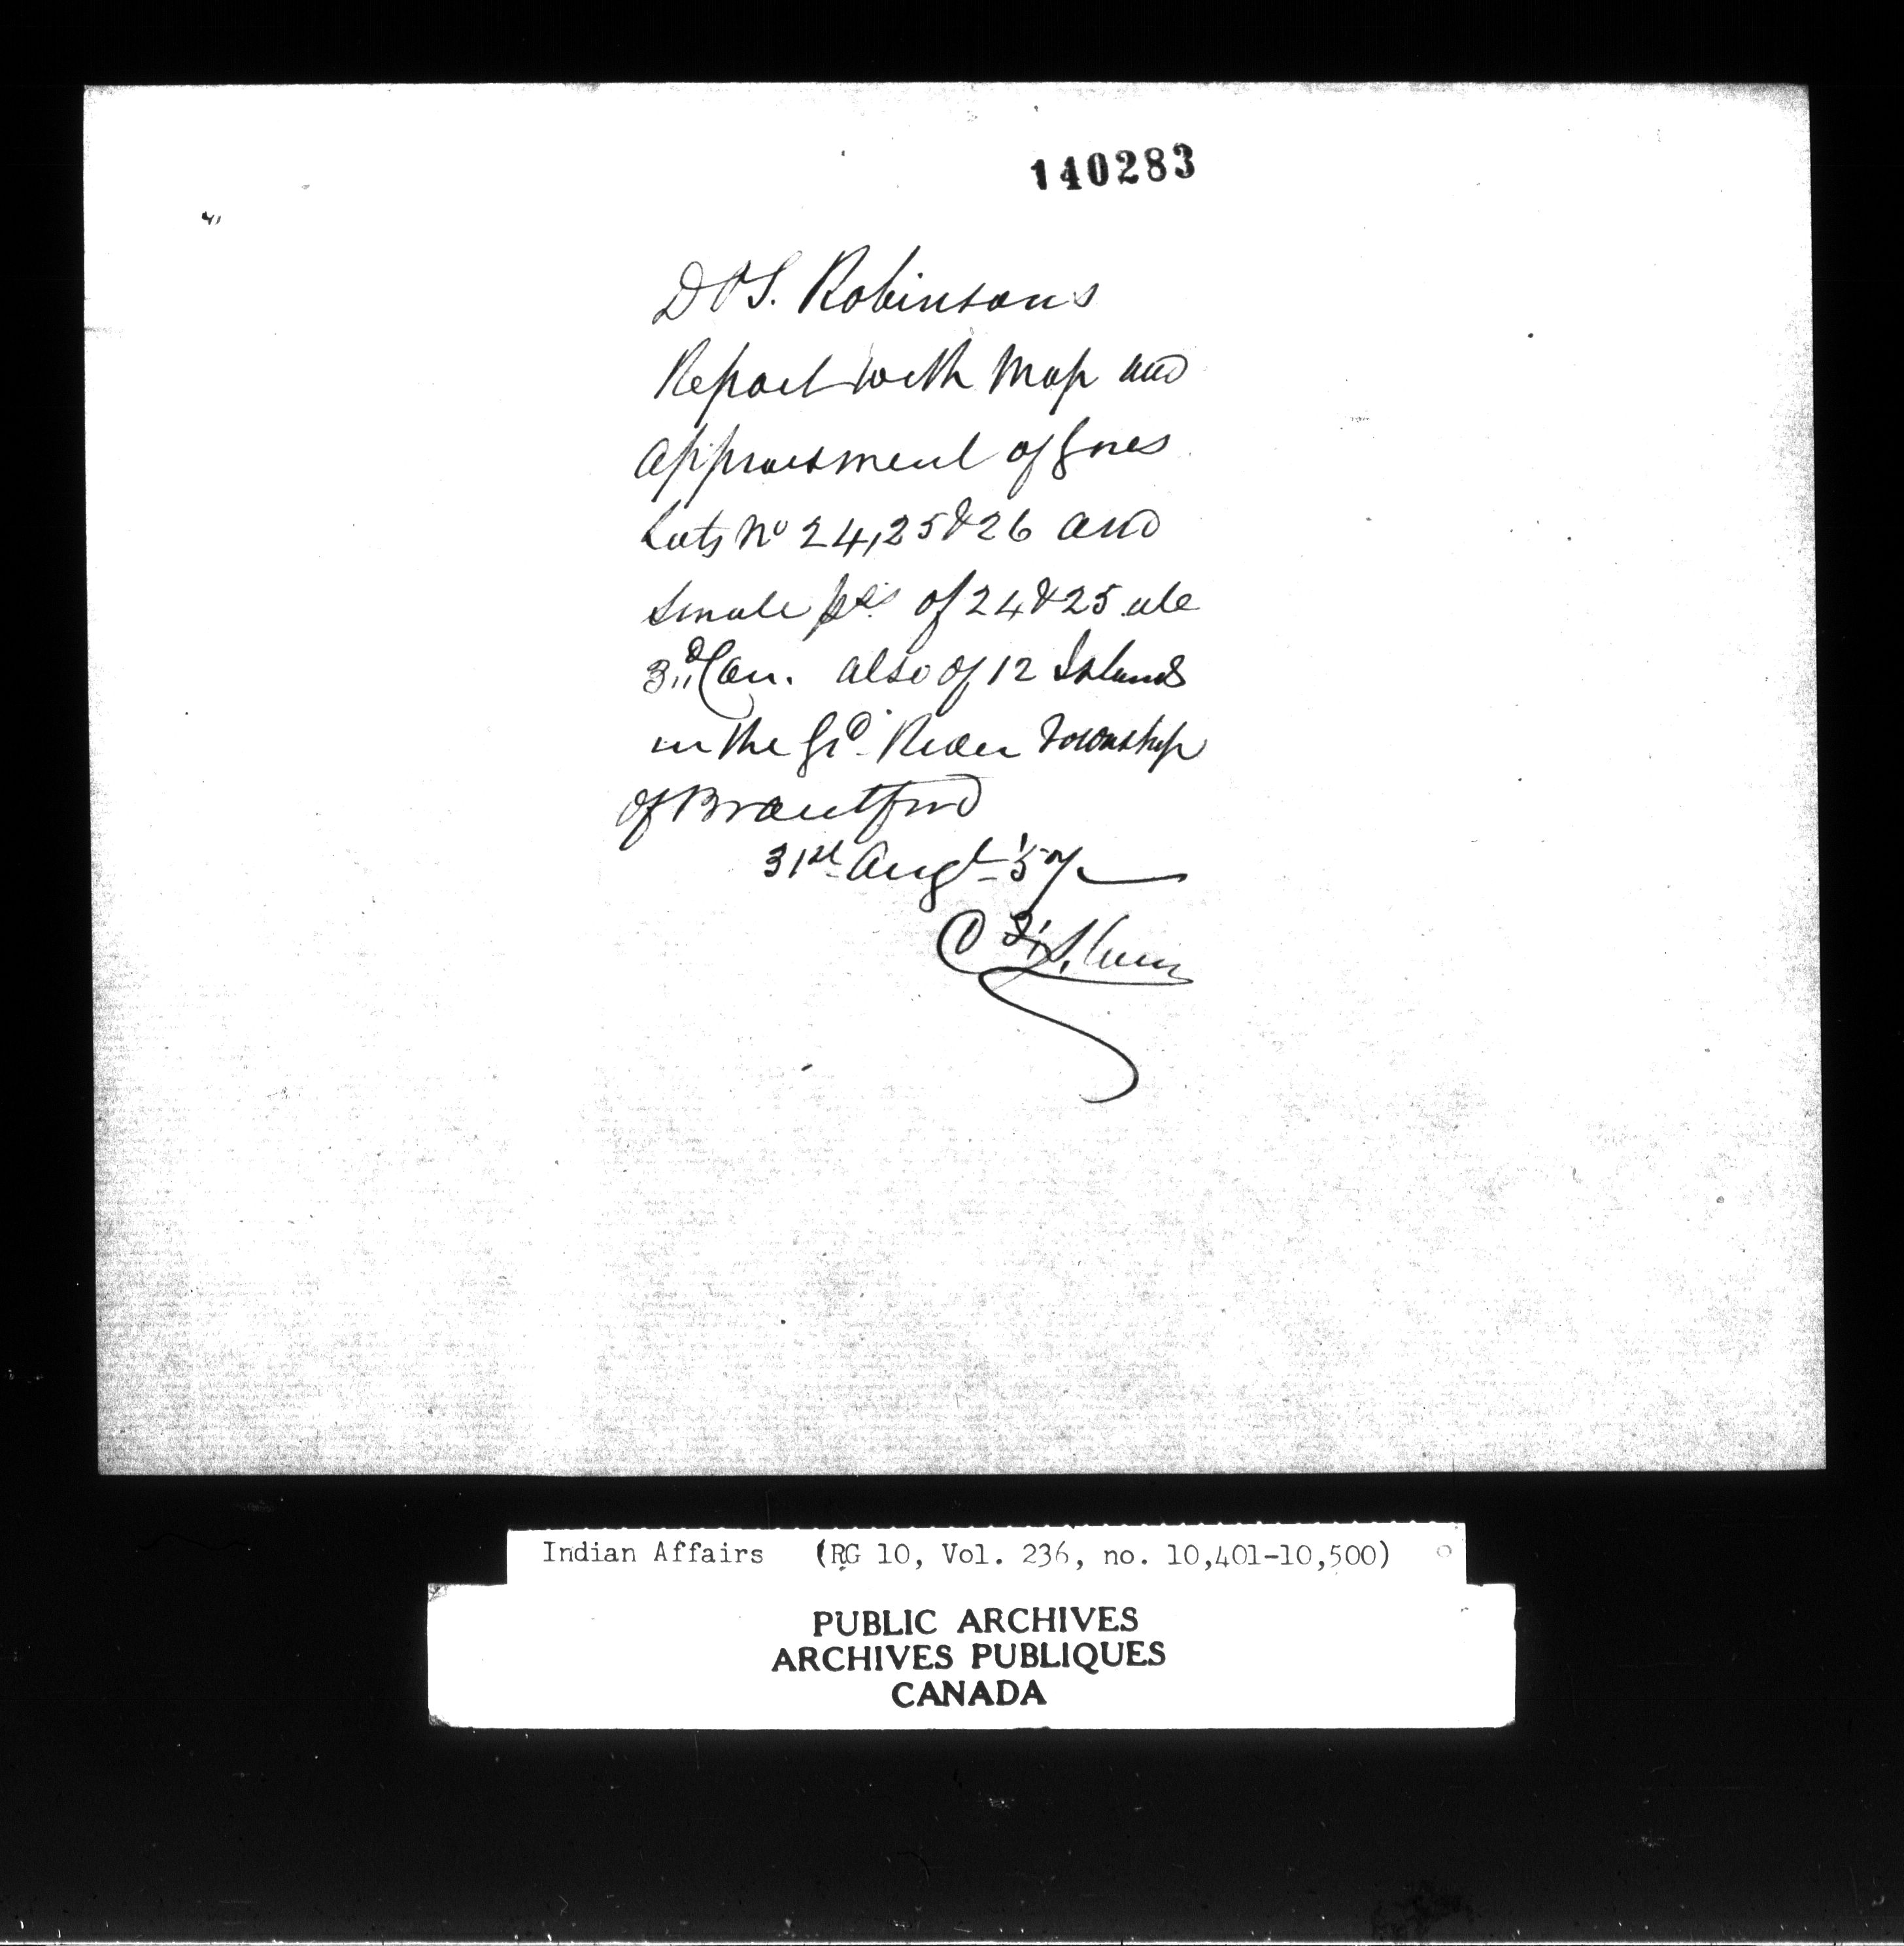 140283
DPS. Robinsons
Report with Map and
appraisment of Gores
Lots No 24, 25 & 26 and
small ps. of 24 & 25 all
3rd Con. also of 12 Islands
in the Gd. River Township
of Brantford
31st Augt '57
Indian Affairs (RG 10, Vol. 236, no. 10,401-10,500)
PUBLIC ARCHIVES
ARCHIVES PUBLIQUES
CANADA